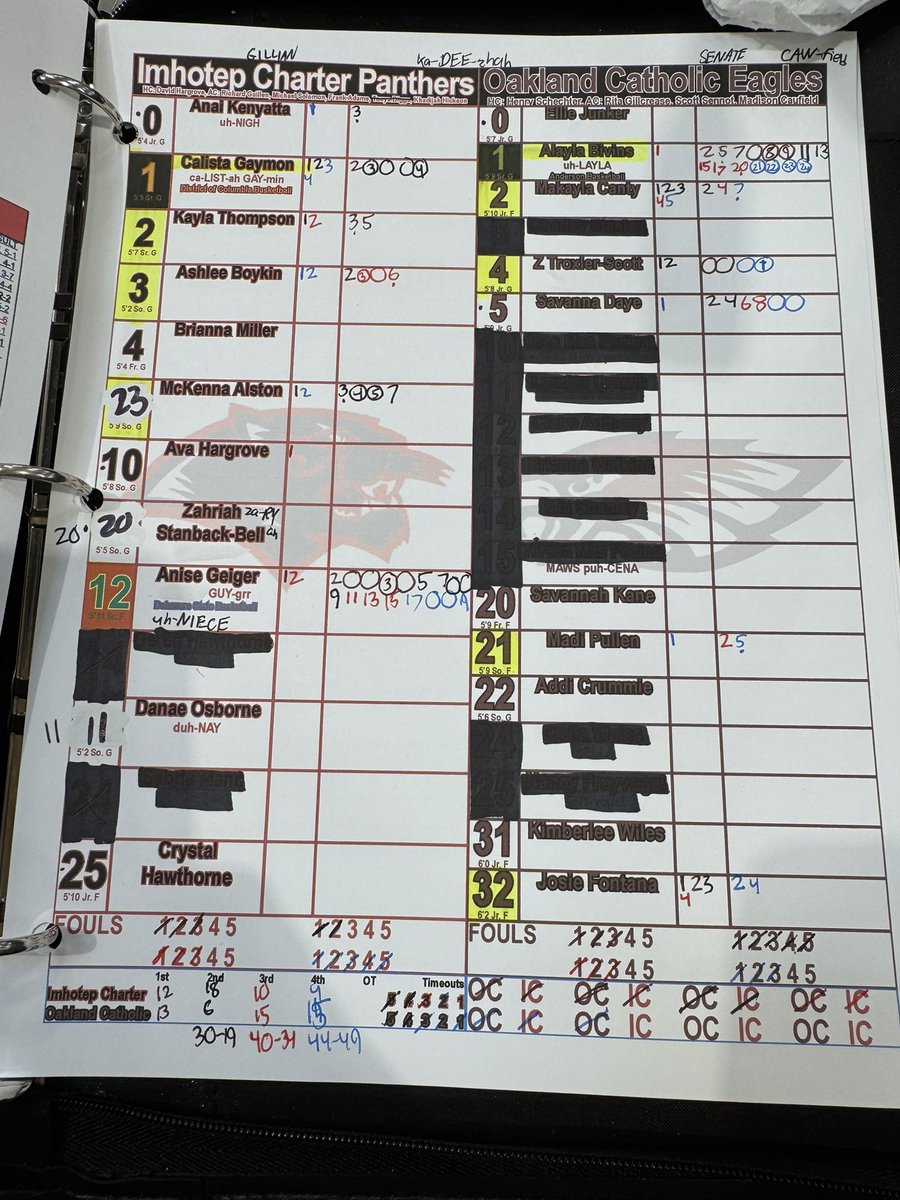 GILLIAN ka-DEE-zhah SENATE CAW-field
Imhotep Charter Panthers
Oakland Catholic Eagles
HC: Henry Schechter, AC: Rita Gillcrease, Scott Sennot, Madison Caufield
0 Anai Kenyatta 1 3
uh-NIGH
5'4 Jr. G
1 Calista Gaymon 123 2 3 0 0 4
ca-LIST-ah GAY-min 4
District of Columbia Basketball
5'5 Sr. G
2 Kayla Thompson 12 3 5
5'7 Sr. G
3 Ashlee Boykin 12 2 5 0 6
5'2 So. G
4 Brianna Miller
5'4 Fr. G
23 McKenna Alston 12 3 4 5 7
5'9 So. G
10 Ava Hargrove 1
5'8 So. G
20 20 Zahriah
Stanback-Bell
5'5 So. G
12 Anise Geiger 12 2 0 0 3 0 5 7 0 0
GUY-grr 9 11 13 15 17 0 0 A
Delaware State Basketball
uh-NIECE
11 11 Danae Osborne
duh-NAY
5'2 So. G
25 Crystal
Hawthorne
5'10 Jr. F
0 Ellie Junker
5'7 Jr. G
1 Alayla Bivins 1 2 5 7 0 8 9 11 13
uh-LAYLA 15 17 20 21 22 23 24
Anderson Basketball
5'9 Sr. G
2 Makayla Canty 123 2 4 7
45
5'10 Jr. F
4 Z Troxler-Scott 12 0 0 0 1
5'8 Jr. G
5 Savanna Daye 1 2 4 6 8 0 0
MAWS puh-CENA
20 Savannah Kane
5'9 Fr. F
21 Madi Pullen 1 2 5
5'9 So. F
22 Addi Crummie
5'6 So. G
31 Kimberlee Wiles
6'0 Jr. F
32 Josie Fontana 123 2 4
4
6'2 Jr. F
FOULS 1 2 3 4 5 1 2 3 4 5
1 2 3 4 5 1 2 3 4 5
FOULS 1 2 3 4 5 1 2 3 4 5
1 2 3 4 5 1 2 3 4 5
1st 2nd 3rd 4th OT Timeouts
Imhotep Charter 12 18 10 4 5 4 3 2 1
Oakland Catholic 13 6 15 15 5 4 3 2 1
30-19 40-34 44-49
OC IC OC IC OC IC OC IC
OC IC OC IC OC IC OC IC